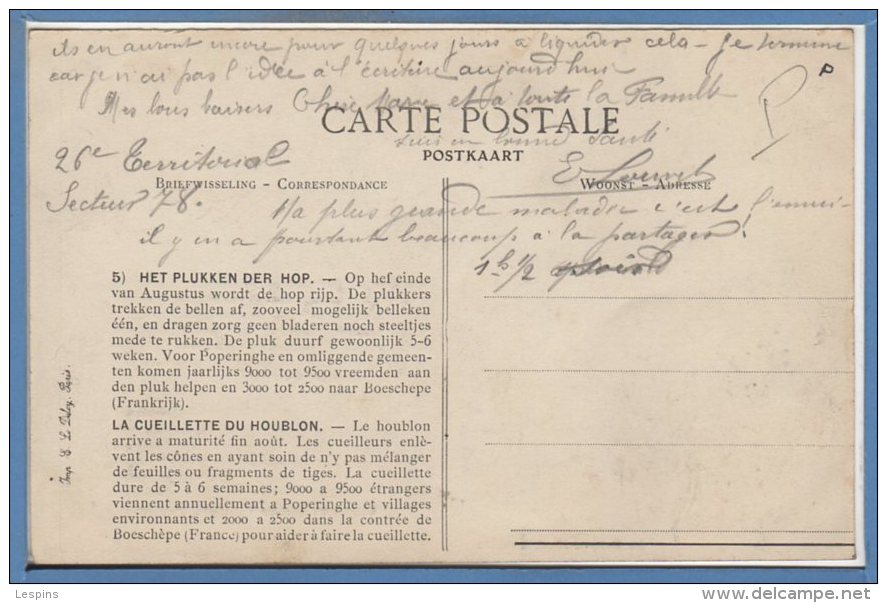 ils en auront encore pour quelques jours à liquider cela - Je termine
car je n'ai pas l'idée à l'écriture aujourd'hui
Mes bons baisers Chère et à toute la Famille
CARTE POSTALE
suis en bonne santé
POSTKAART
26e Territorial
E
BRIEFWISSELING - CORRESPONDANCE
WOONST - ADRESSE
Secteur 78.
Ma plus grande maladie c'est l'ennui
il y en a pourtant beaucoup à la partager!
1h 1/2
5) HET PLUKKEN DER HOP. — Op hef einde
van Augustus wordt de hop rijp. De plukkers
trekken de bellen af, zooveel mogelijk belleken
één, en dragen zorg geen bladeren noch steeltjes
mede te rukken. De pluk duurf gewoonlijk 5-6
weken. Voor Poperinghe en omliggende gemeen-
ten komen jaarlijks 9000 tot 9500 vreemden aan
den pluk helpen en 3000 tot 2500 naar Boeschepe
(Frankrijk).
LA CUEILLETTE DU HOUBLON. — Le houblon
arrive a maturité fin août. Les cueilleurs enlè-
vent les cônes en ayant soin de n'y pas mélanger
de feuilles ou fragments de tiges. La cueillette
dure de 5 à 6 semaines; 9000 a 9500 étrangers
viennent annuellement a Poperinghe et villages
environnants et 2000 a 2500 dans la contrée de
Boeschèpe (France) pour aider à faire la cueillette.
Imp. E. Le Deley, Paris.
Lespins
delcampe.net